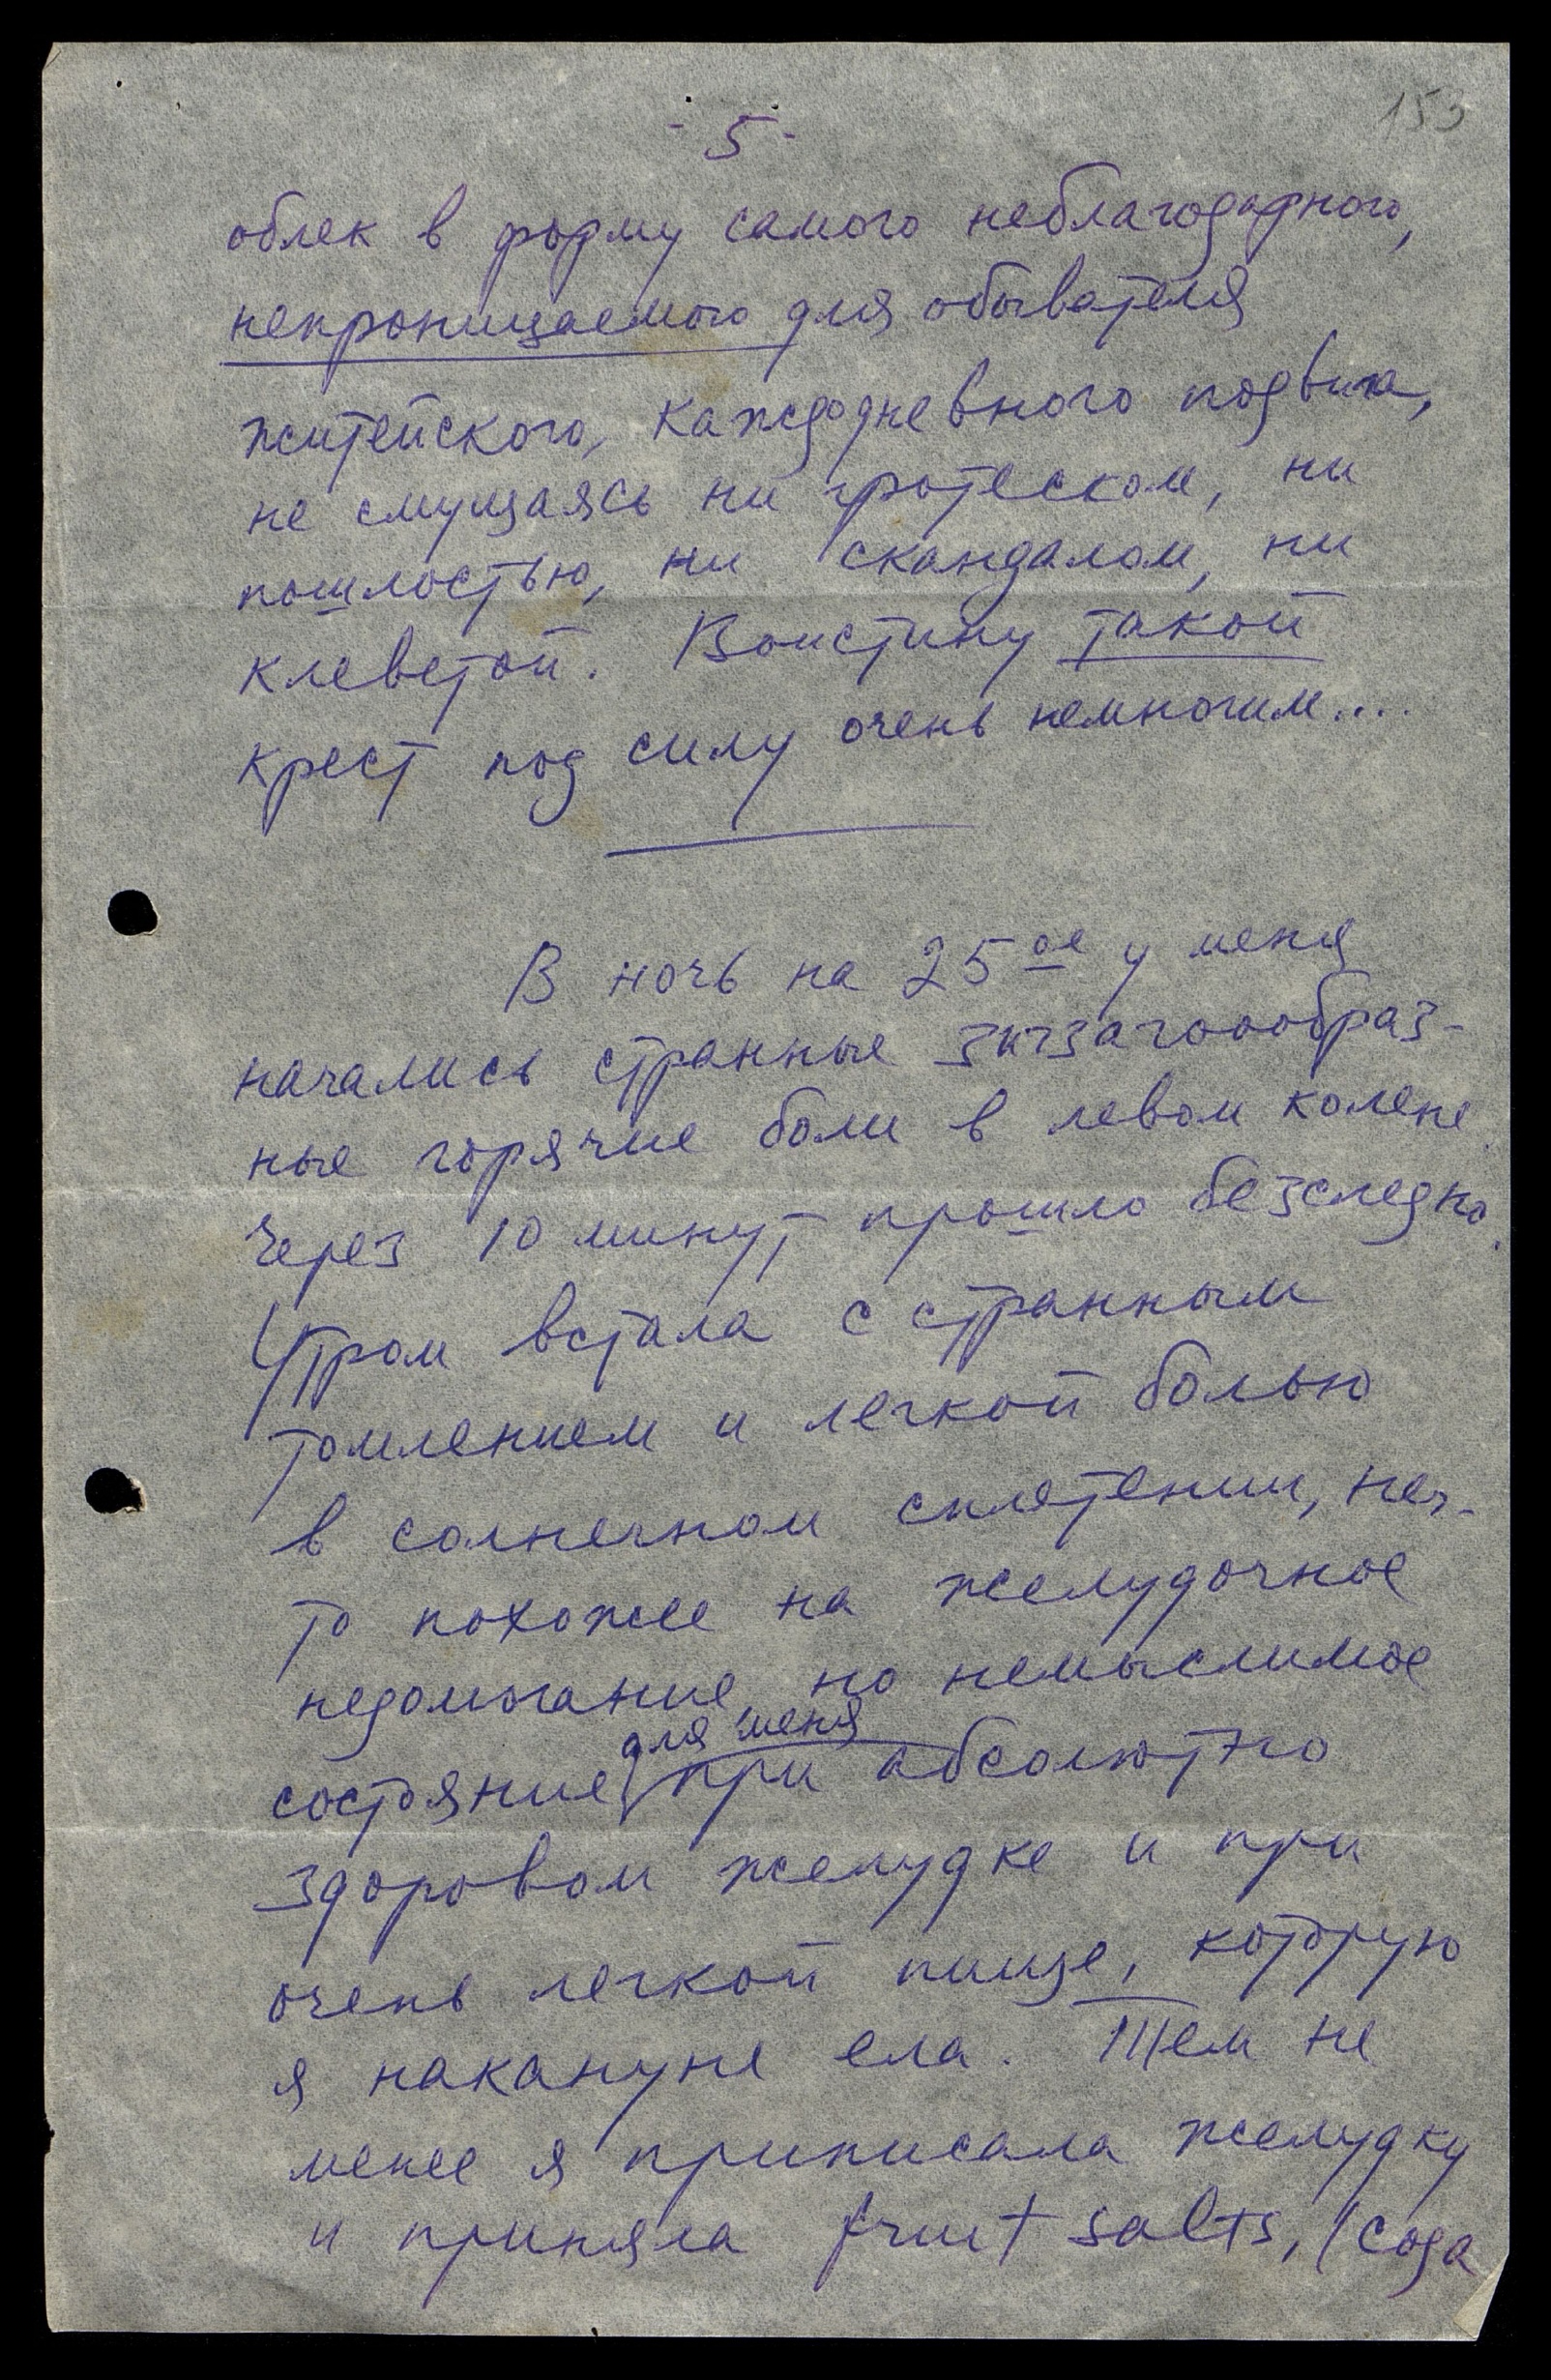 153
- 5 -
облек в форму самого неблагодарного,
непроницаемого для обывателя
житейского, каждодневного подвига,
не смущаясь ни гротеском, ни
пошлостью, ни скандалом, ни
клеветой. Воистину такой
крест под силу очень немногим....
В ночь на 25ое у меня
начались странные зигзагоообраз-
ные горячие боли в левом колене.
Через 10 минут прошло безследно.
Утром встала с странным
томлением и легкой болью
в солнечном сплетении, неч-
то похожее на желудочное
недомогание, но немыслимое
для меня
состояние при абсолютно
здоровом желудке и при
очень легкой пище, которую
я накануне ела. Тем не
менее я приписала желудку
и приняла fruit salts, (сода